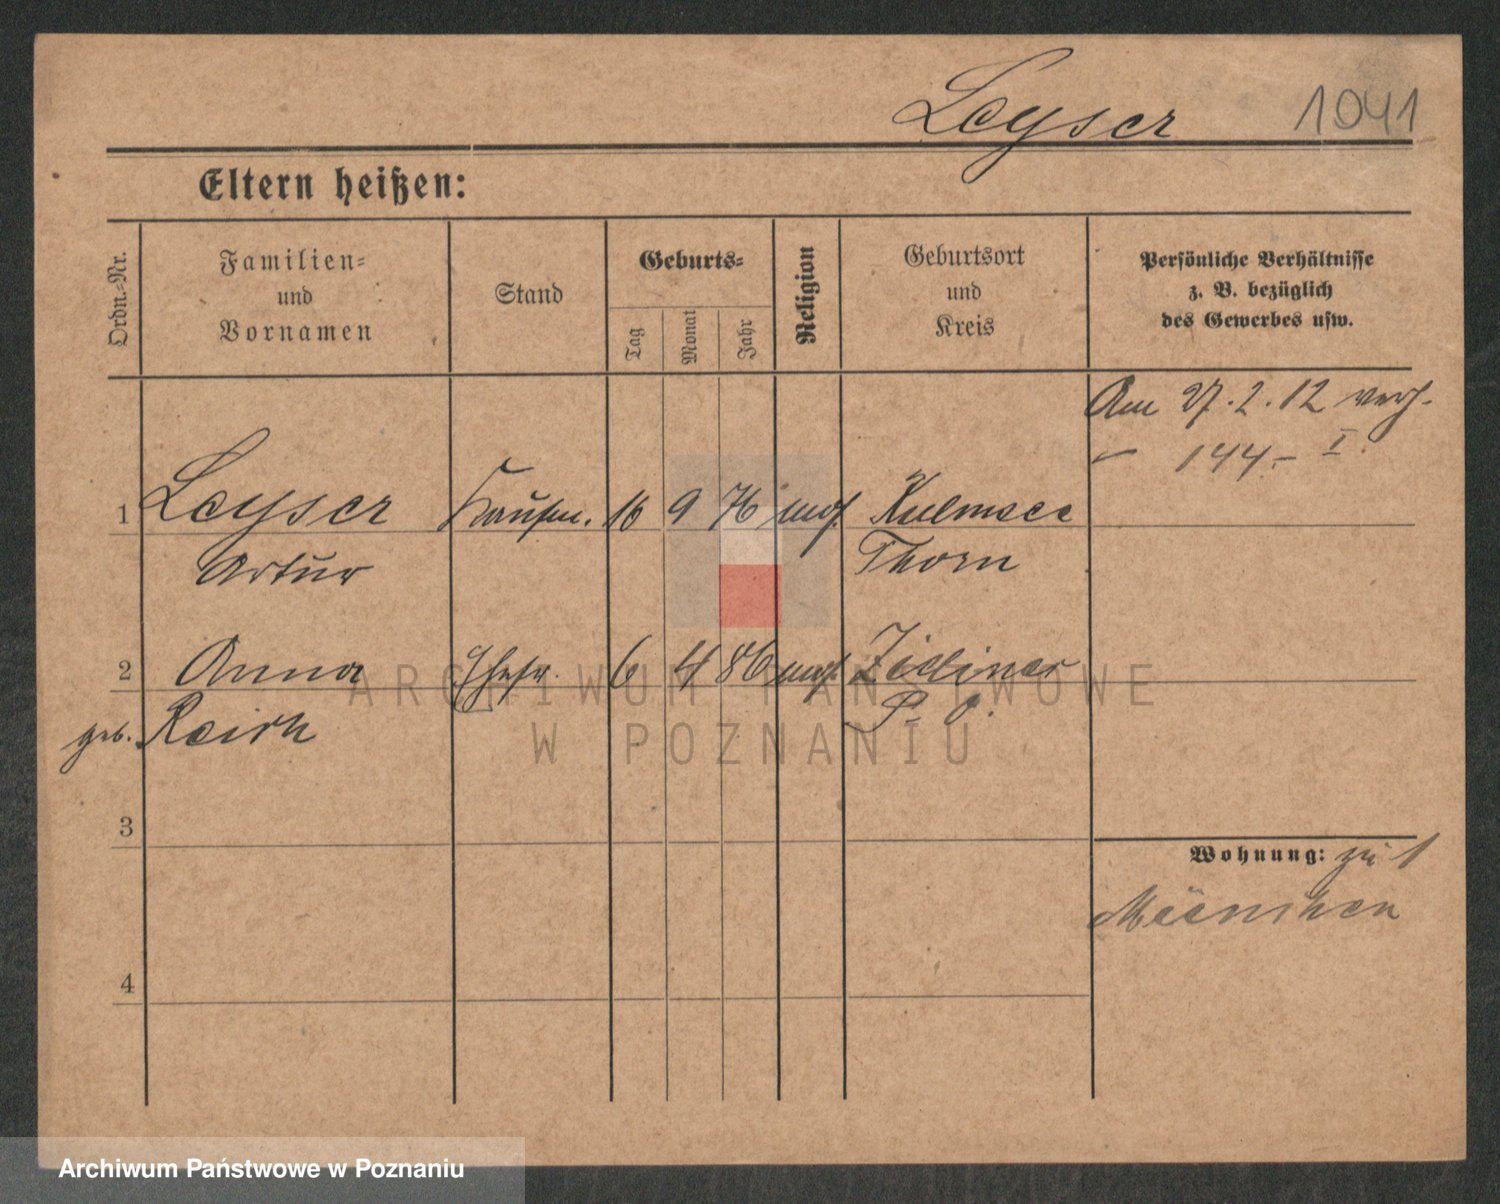 Leyser 1041
Eltern heißen:
Ordn.-Nr.
Familien-
und
Vornamen
Stand
Geburts-
Tag
Monat
Jahr
Religion
Geburtsort
und
Kreis
Persönliche Verhältnisse
z. B. bezüglich
des Gewerbes usw.
Am 27.2.12 verh.
144.- I
1 Leyser Kaufm. 16 9 76 mos. Kulmsee
Artur Thorn
2 Anna Ehefr. 6 4 86 mos.
geb. Reich P. O.
3
Wohnung: zu 1
München
4
ARCHIWUM PAŃSTWOWE
W POZNANIU
Archiwum Państwowe w Poznaniu